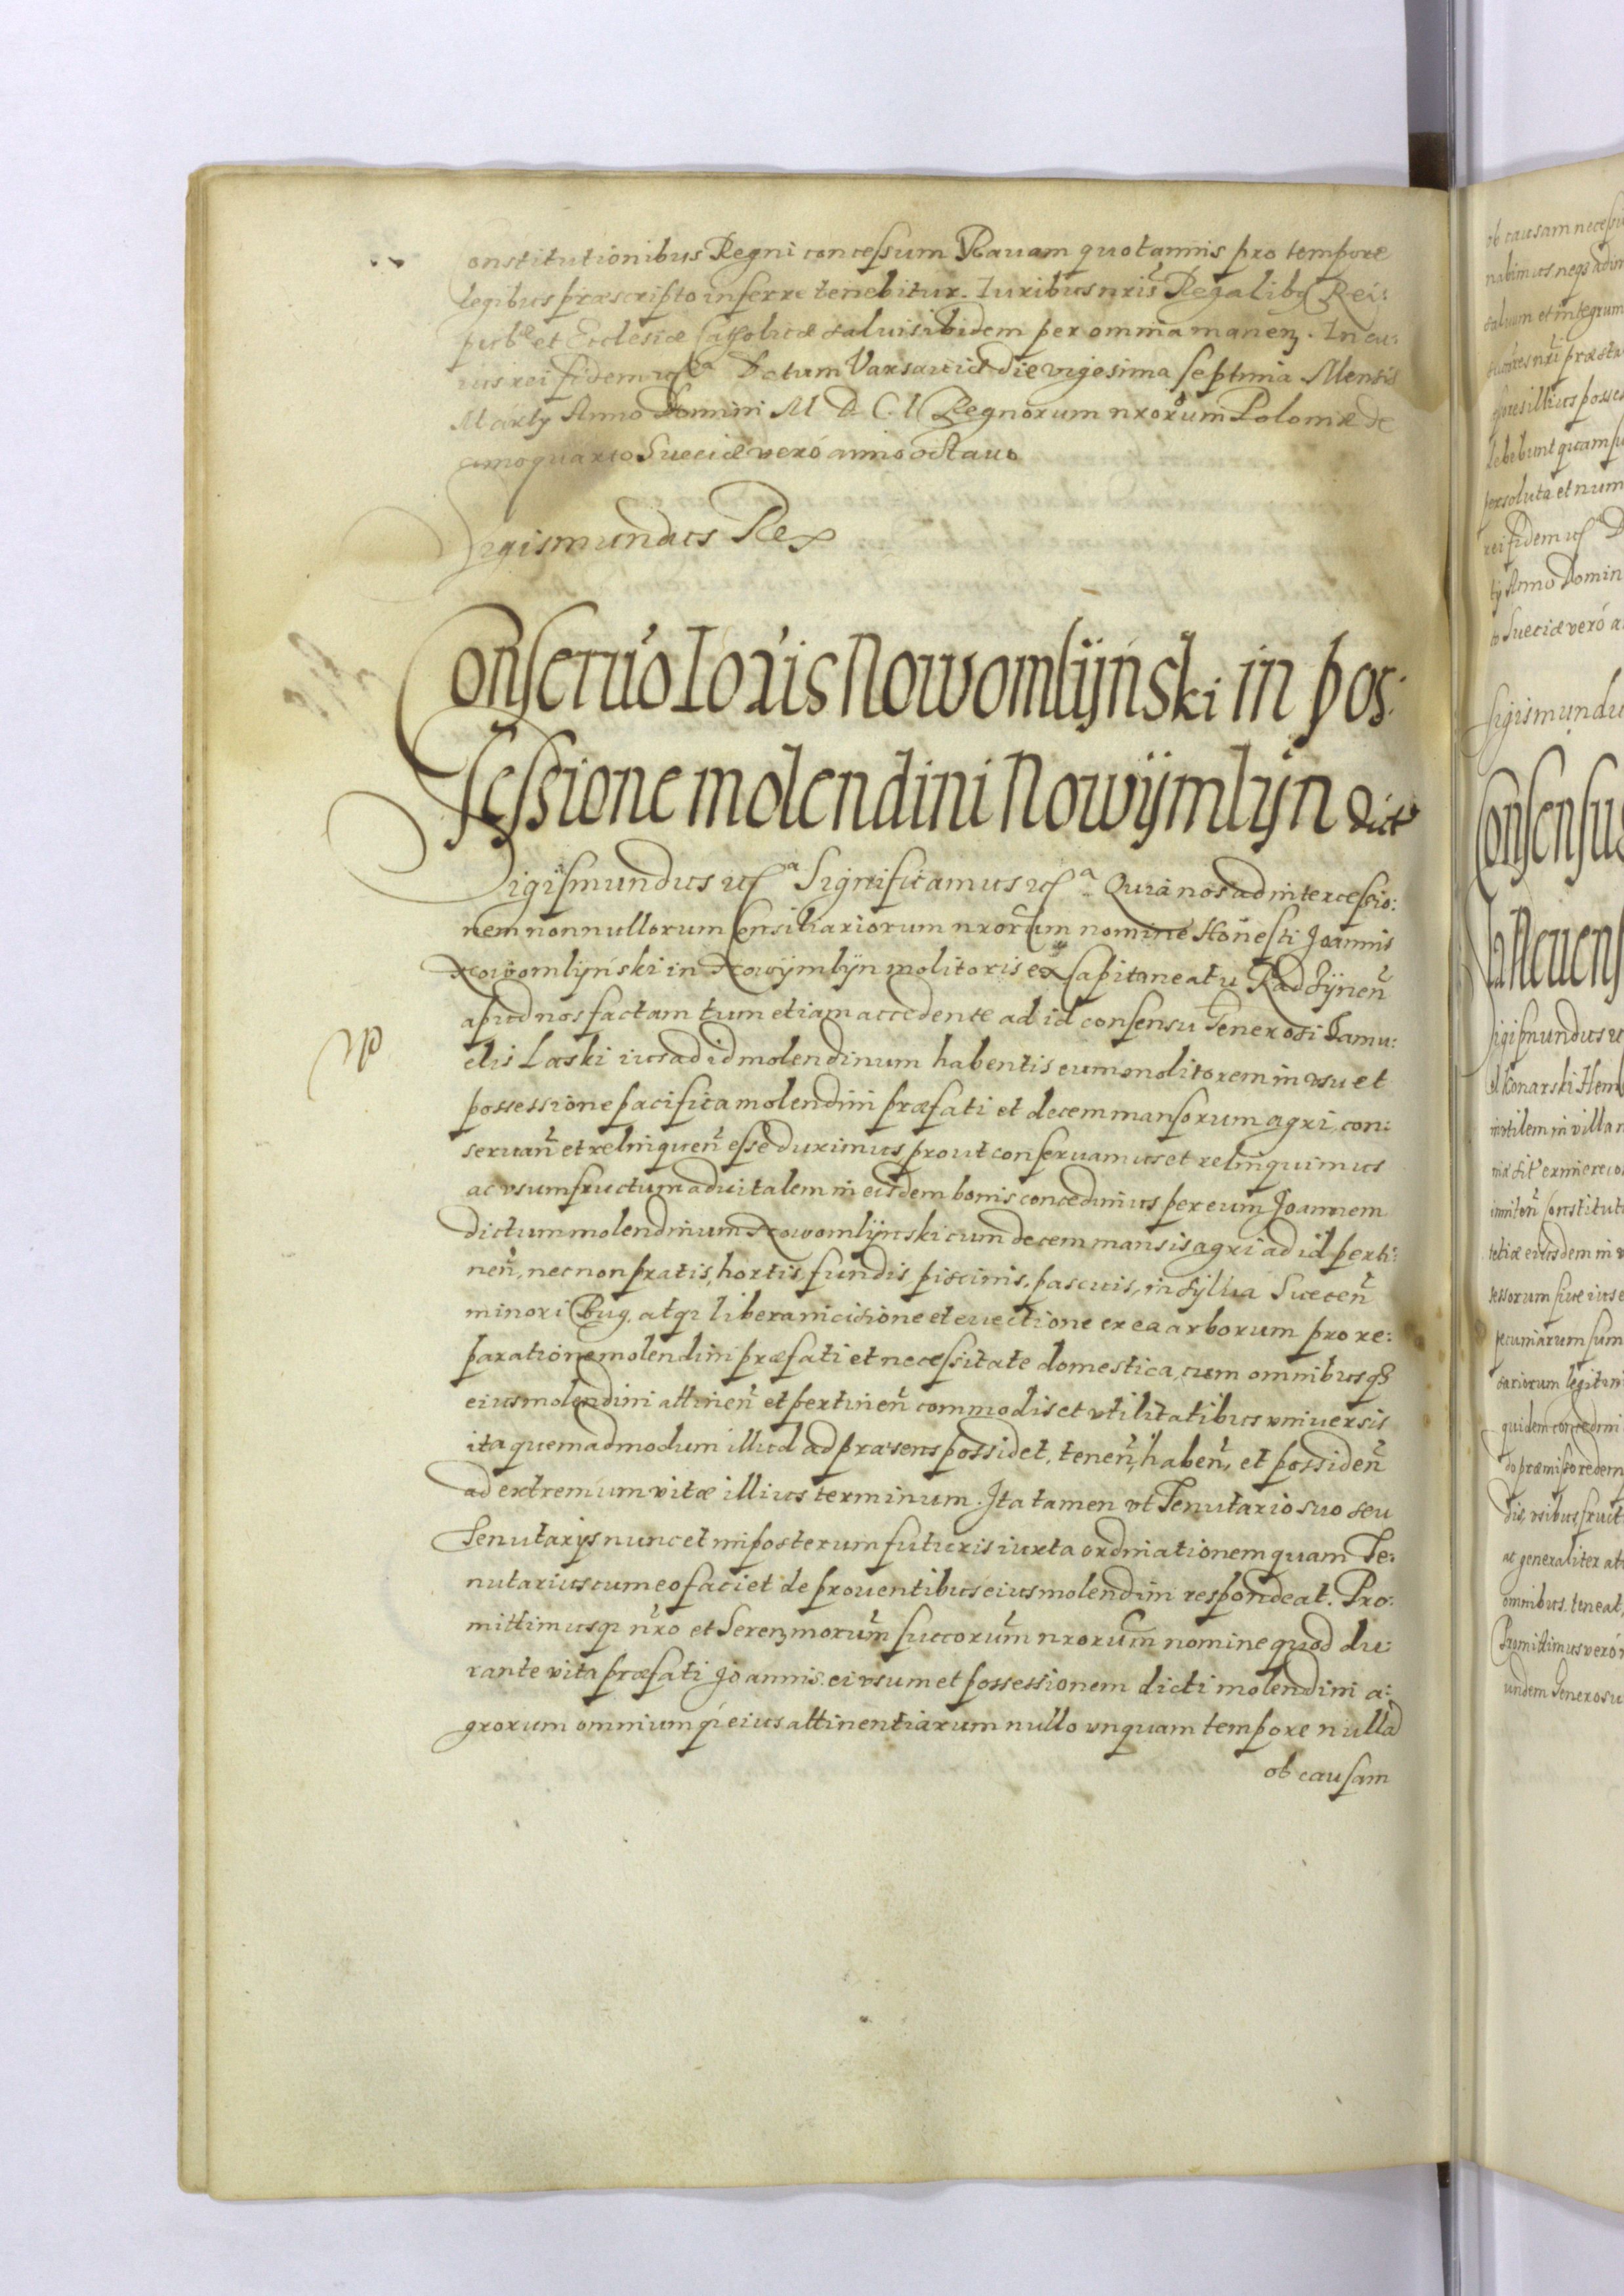 onstitutionibus Regni concessum Rauam quotannis pro tempore
legibus præscripto inferre tenebitur. Iuribus nris Regalibq Rei:
pub: et Ecclesiæ Catholicæ saluis ibidem per omnia manen. In cu:
ius rei fidem etca Datum Varsauiæ die vigesima septima Mensis
Martÿ Anno Domini M D C. I Regnorum nrorum Poloniæ de
cimoquarto Sueciæ veró anno octauo
Sigismundus Rex
Conseruo Ioũis Nowomlÿnski in pos:
sessione molendini Nowÿmlÿn dict
Sigismundus etca Significamus etca Quia nos ad intercessio:
nem nonnullorum Consiliariorum nrorum nomine Honesti Joannis
Nowomlÿnski in Nowÿmlÿn molitoris ex Capitaneatu Radzÿnen
apud nos factam tum etiam accedente ad id consensu Generosi Samu:
elis Laski ius ad id molendinum habentis eum molitorem in vsu et
possessione pacifica molendini præfati et decem mansorum agri, con:
seruan et relinquen esse duximus, prout conseruamus et relinquimus
ac vsumfructum aduitalem in eisdem bonis concedimus per eum Joannem
dictum molendinum Nowomlÿnski cum decem mansis agri ad id perti:
nen, nec non pratis, hortis, fundis, piscinis, pascuis, in sylua Suecen
minori Bug, atqz libera incisione et euectione ex ea arborum pro re:
paratione molendini præfati et necessitate domestica, cum omnibusq
eius molendini attinen et pertinen commodis et vtilitatibus vniuersis
ita quemadmodum illud ad præsens possidet, tenen, haben, et possiden
ad extremum vitæ illius terminum. Ita tamen vt Tenutario suo seu
Tenutarÿs nunc et imposterum futuris iuxta ordinationem quam Te:
nutarius cum eo faciet de prouentibus eius molendini respondeat. Pro:
mittimusqz nro et Serenmorum succorum nrorum nomine quod du:
rante vita præfati Joannis, ei vsum et possessionem dicti molendini a:
grorum omniumqz eius attinentiarum nullo vnquam tempore nulla
ob causam